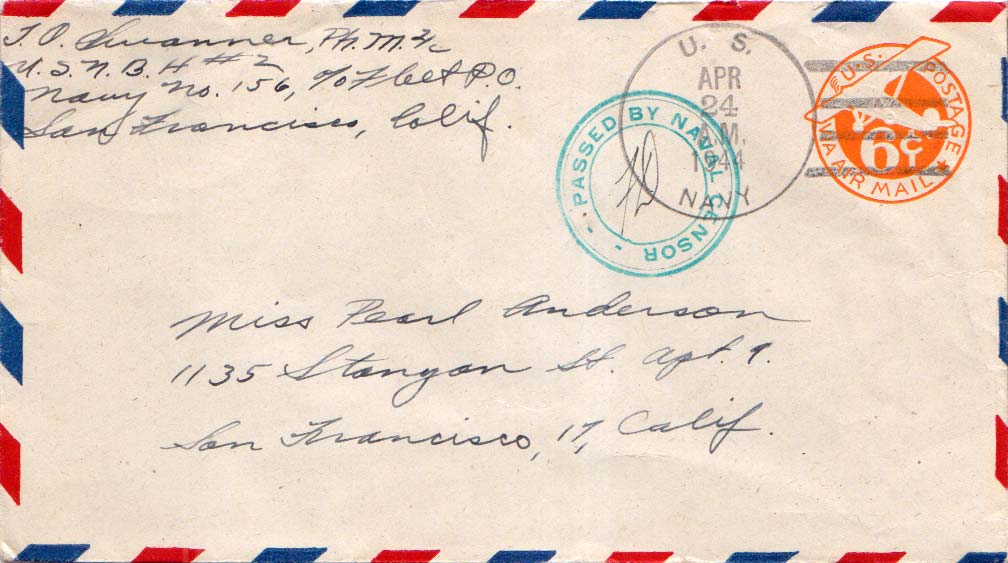 T. O. Swanner, Ph. M. 2/c
U. S. N. B. H #2
Navy No. 156, c/o Fleet P.O.
San Francisco, Calif.
U. S.
APR
24
A M,
1944
NAVY
PASSED BY NAVAL CENSOR
U.S. POSTAGE
6¢
VIA AIR MAIL
Miss Pearl Anderson
1135 Stanyan St. Apt. 9.
San Francisco, 17, Calif.